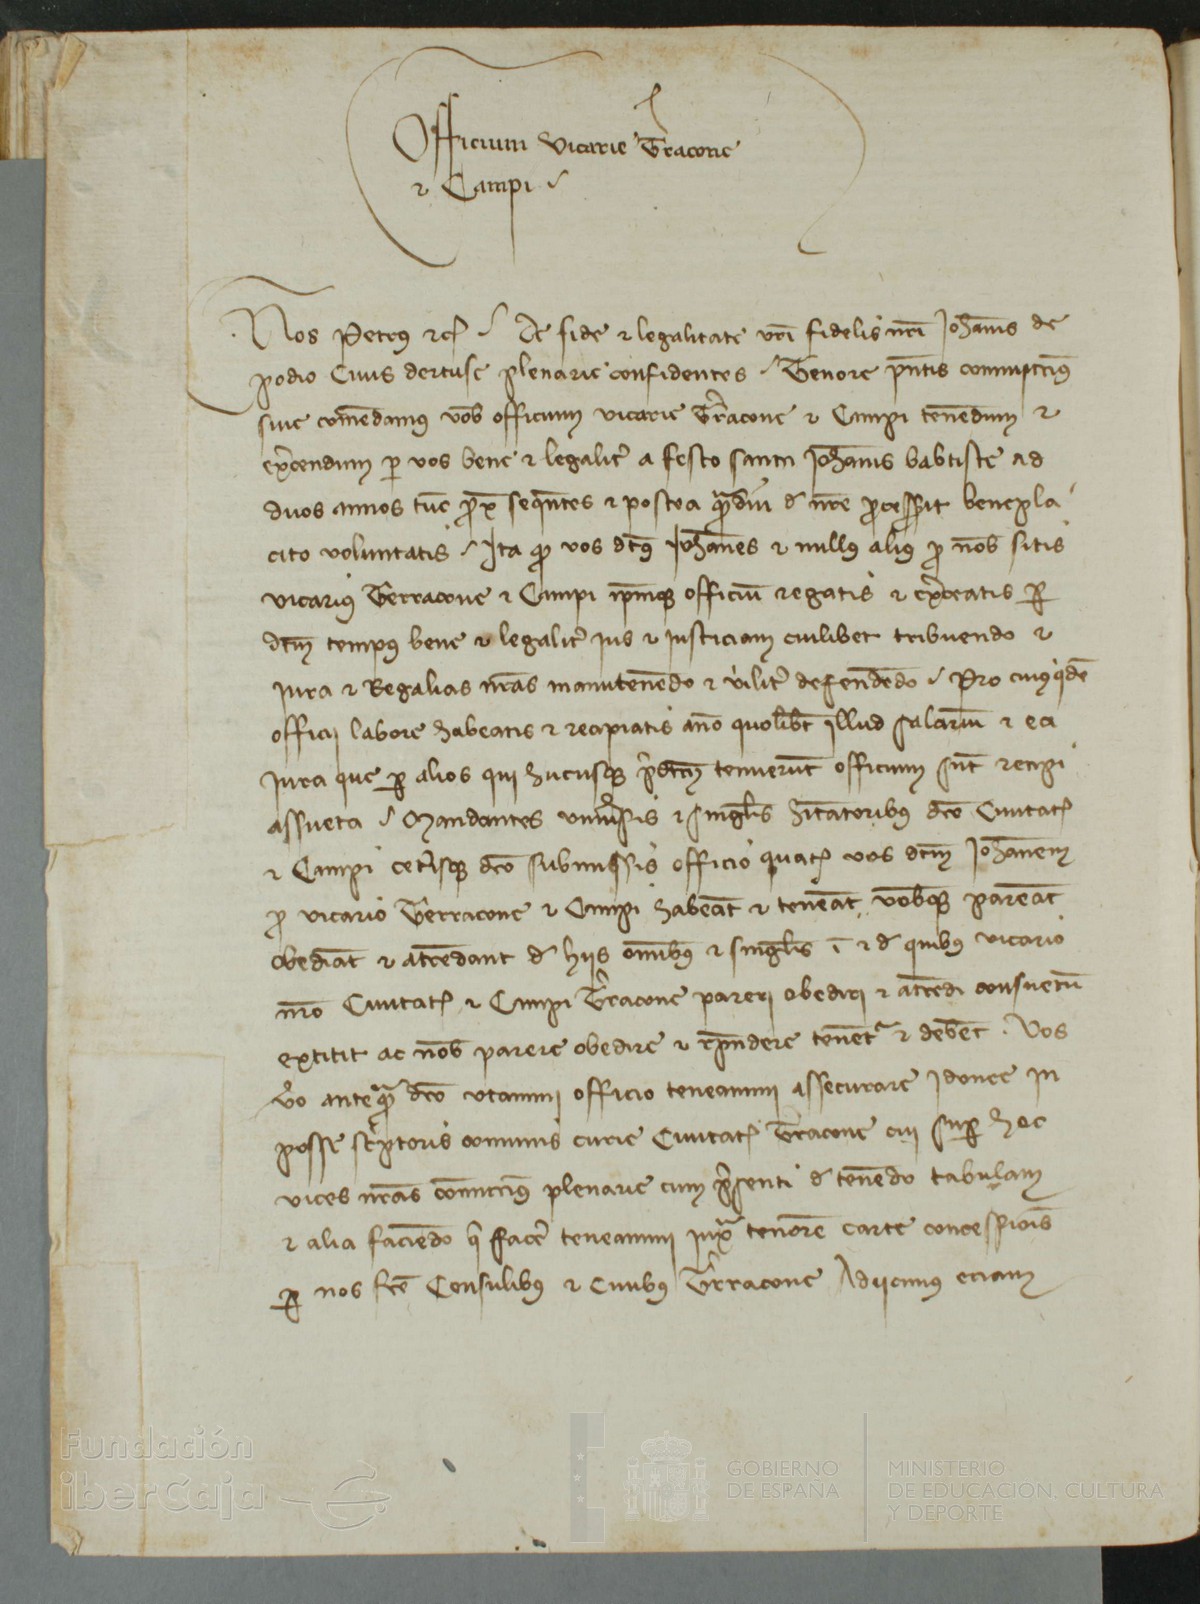 Officium vicarie Tracone
⁊ Campi
Nos Petrus ⁊c De fide ⁊ legalitate vri fidelis nri Johanis de
podio Civis dertuse plenarie confidentes Tenore pntis comittimus
sive comedamus vob officium vicarie Tracone ⁊ Campi tenedum ⁊
exrcendum p vos bene ⁊ legalit a festo sancti Johanis babtiste ad
duos annos tuc prox seqntes ⁊ postea qmdiu d nre processerit benepla
cito voluntatis Ita q vos dcus Johanes ⁊ nullus alius p nob sitis
vicarius Terracone ⁊ Campi ipmque officiu regatis ⁊ exrceatis p
dcm tempus bene ⁊ legalit ius ⁊ iusticiam cuilibet tribuendo ⁊
Jura ⁊ Regalias nras manutenedo ⁊ vilit defendedo Pro cuiusqde
officii labore habeatis ⁊ recipiatis ano quolibt illud salariu ⁊ ea
jura que p alios qui hucusque pdcm tenuerut officium sut recipi
assueta Mandantes univsis ⁊ singlis hitatoribus dce Civitat
⁊ Campi cetisque dco submissis officio quat vos dcm Johanem
p vicario Terracone ⁊ Campi habeat ⁊ teneat vobque pareat
obediat ⁊ atendant d hiis omibus ⁊ singlis i ⁊ d quibus vicario
nro Civitat ⁊ Campi Tracone pareri obediri ⁊ atedi consuetu
extitit ac nob parere obedire ⁊ rpondere tenet ⁊ debet. Vos
vo anteqm dco utamini officio teneamini assecurare Idonee in
posse scptoris comunis curie Civitat Tracone cui sup hoc
vices nras comittimus plenarie cum psenti d tenedo tabulam
⁊ alia faciedo q facere teneamini juxa tenore carte concessiois
p nos fce Consulibus ⁊ Civibus Terracone Adiicimus eciam
Fundación
iberCaja
GOBIERNO
DE ESPAÑA
MINISTERIO
DE EDUCACIÓN, CULTURA
Y DEPORTE